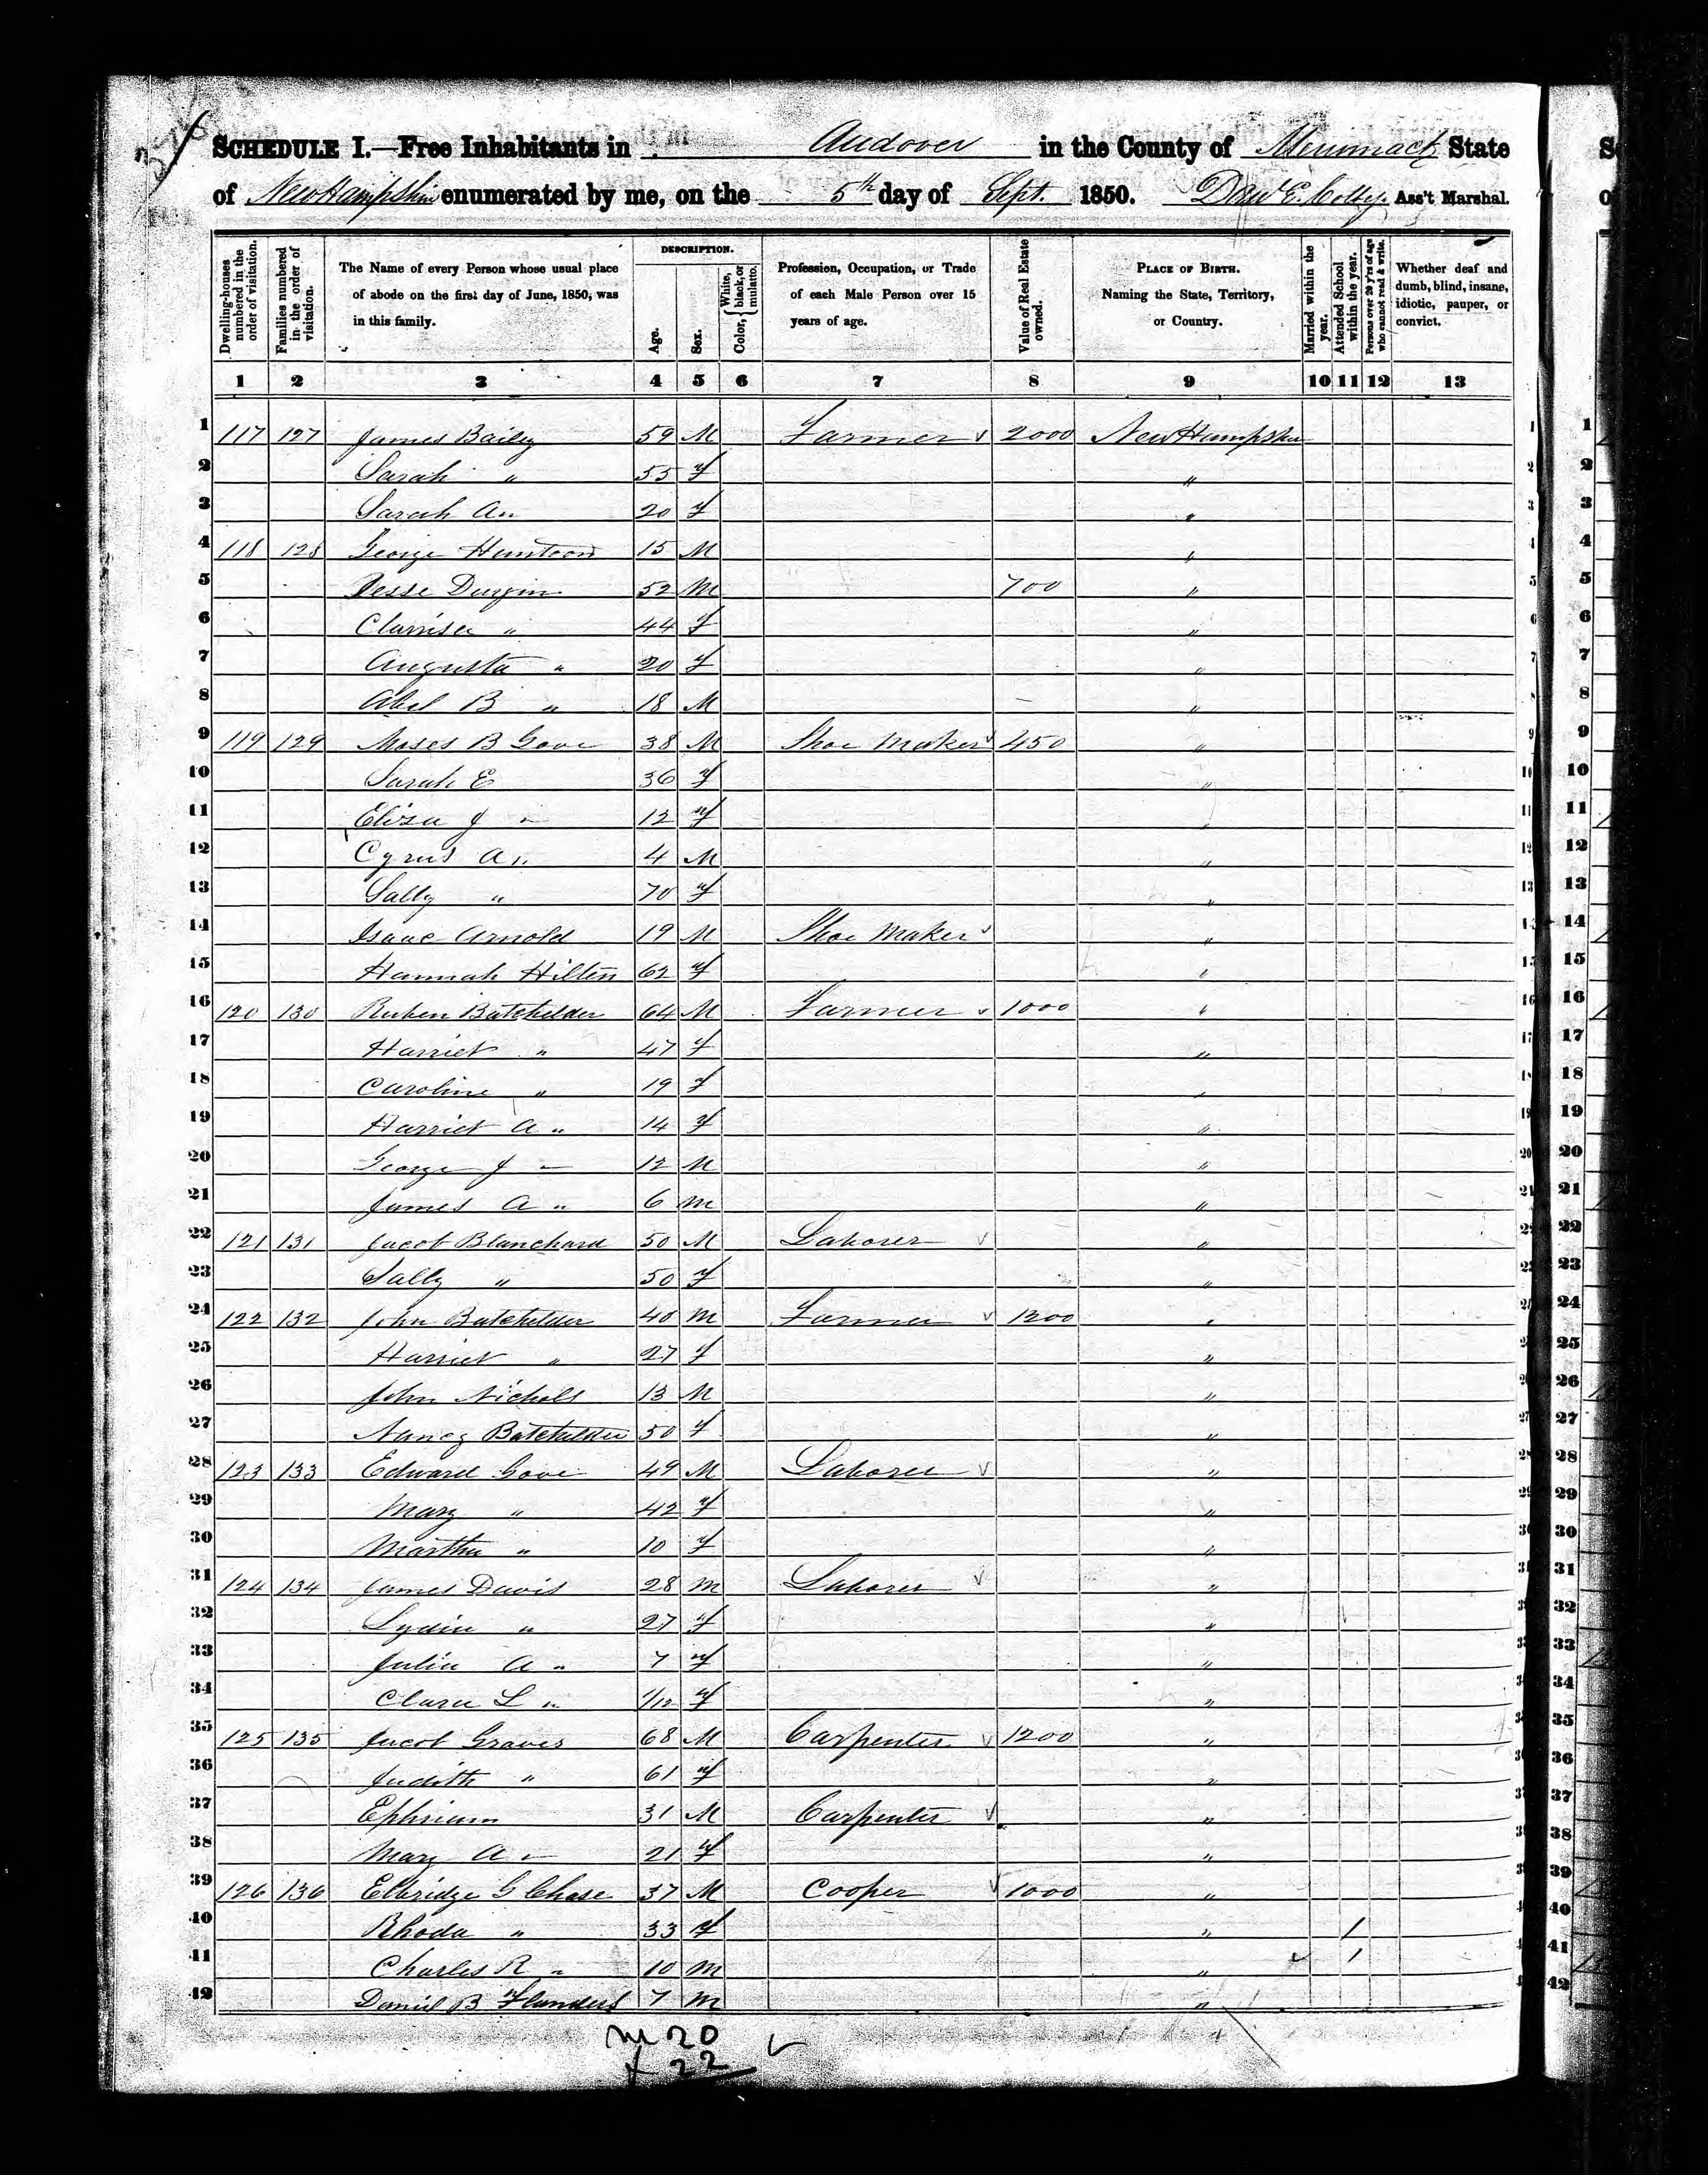 SCHEDULE I.—Free Inhabitants in Andover in the County of Merrimack State
of New Hampshire enumerated by me, on the 5th day of Sept. 1850. E. Colby. Ass't Marshal.
Dwelling-houses numbered in the order of visitation.
Families numbered in the order of visitation.
The Name of every Person whose usual place of abode on the first day of June, 1850, was in this family.
DESCRIPTION.
Age.
Sex.
Color, { White, black, or mulatto.
Profession, Occupation, or Trade of each Male Person over 15 years of age.
Value of Real Estate owned.
PLACE OF BIRTH. Naming the State, Territory, or Country.
Married within the year.
Attended School within the year.
Persons over 20 y'rs of age who cannot read & write.
Whether deaf and dumb, blind, insane, idiotic, pauper, or convict.
1 2 3 4 5 6 7 8 9 10 11 12 13
1 117 127 James Bailey 59 M Farmer 2000 New Hampshire 1
2 Sarah " 55 f " 2
3 Sarah An 20 f " 3
4 118 128 George Huntoon 15 M " 4
5 Jesse Durgin 52 M 700 " 5
6 Clarrisa " 44 f " 6
7 Augusta " 20 f " 7
8 Abel B " 18 M " 8
9 119 129 Moses B Gove 38 M Shoe Maker 450 " 9
10 Sarah E 36 f " 10
11 Eliza J " 12 f " 11
12 Cyrus A " 4 M " 12
13 Sally " 70 f " 13
14 Isaac Arnold 19 M Shoe Maker " 14
15 Hannah Hilton 62 f " 15
16 120 130 Reuben Batchelder 64 M Farmer 1000 " 16
17 Harriet " 47 f " 17
18 Caroline " 19 f " 18
19 Harriet A " 14 f " 19
20 George J " 12 M " 20
21 James A " 6 M " 21
22 121 131 Jacob Blanchard 50 M Laborer " 22
23 Sally " 50 f " 23
24 122 132 John Batchelder 40 M Farmer 1200 " 24
25 Harriet " 27 f " 25
26 John Nichols 13 M " 26
27 Nancy Batchelder 50 f " 27
28 123 133 Edward Gove 49 M Laborer " 28
29 Mary " 42 f " 29
30 Martha " 10 f " 30
31 124 134 James Davis 28 M Laborer " 31
32 Lydia " 27 f " 32
33 Julia A " 7 f " 33
34 Clara L " 1/12 f " 34
35 125 135 Jacob Graves 68 M Carpenter 1200 " 35
36 Judith " 61 f " 36
37 Ephriam 31 M Carpenter " 37
38 Mary A " 21 f " 38
39 126 136 Elbridge G Chase 37 M Cooper 1000 " 39
40 Rhoda " 33 f " / 40
41 Charles R " 10 M " / 41
42 Daniel B Flanders 7 M " 42
M 20
f 22